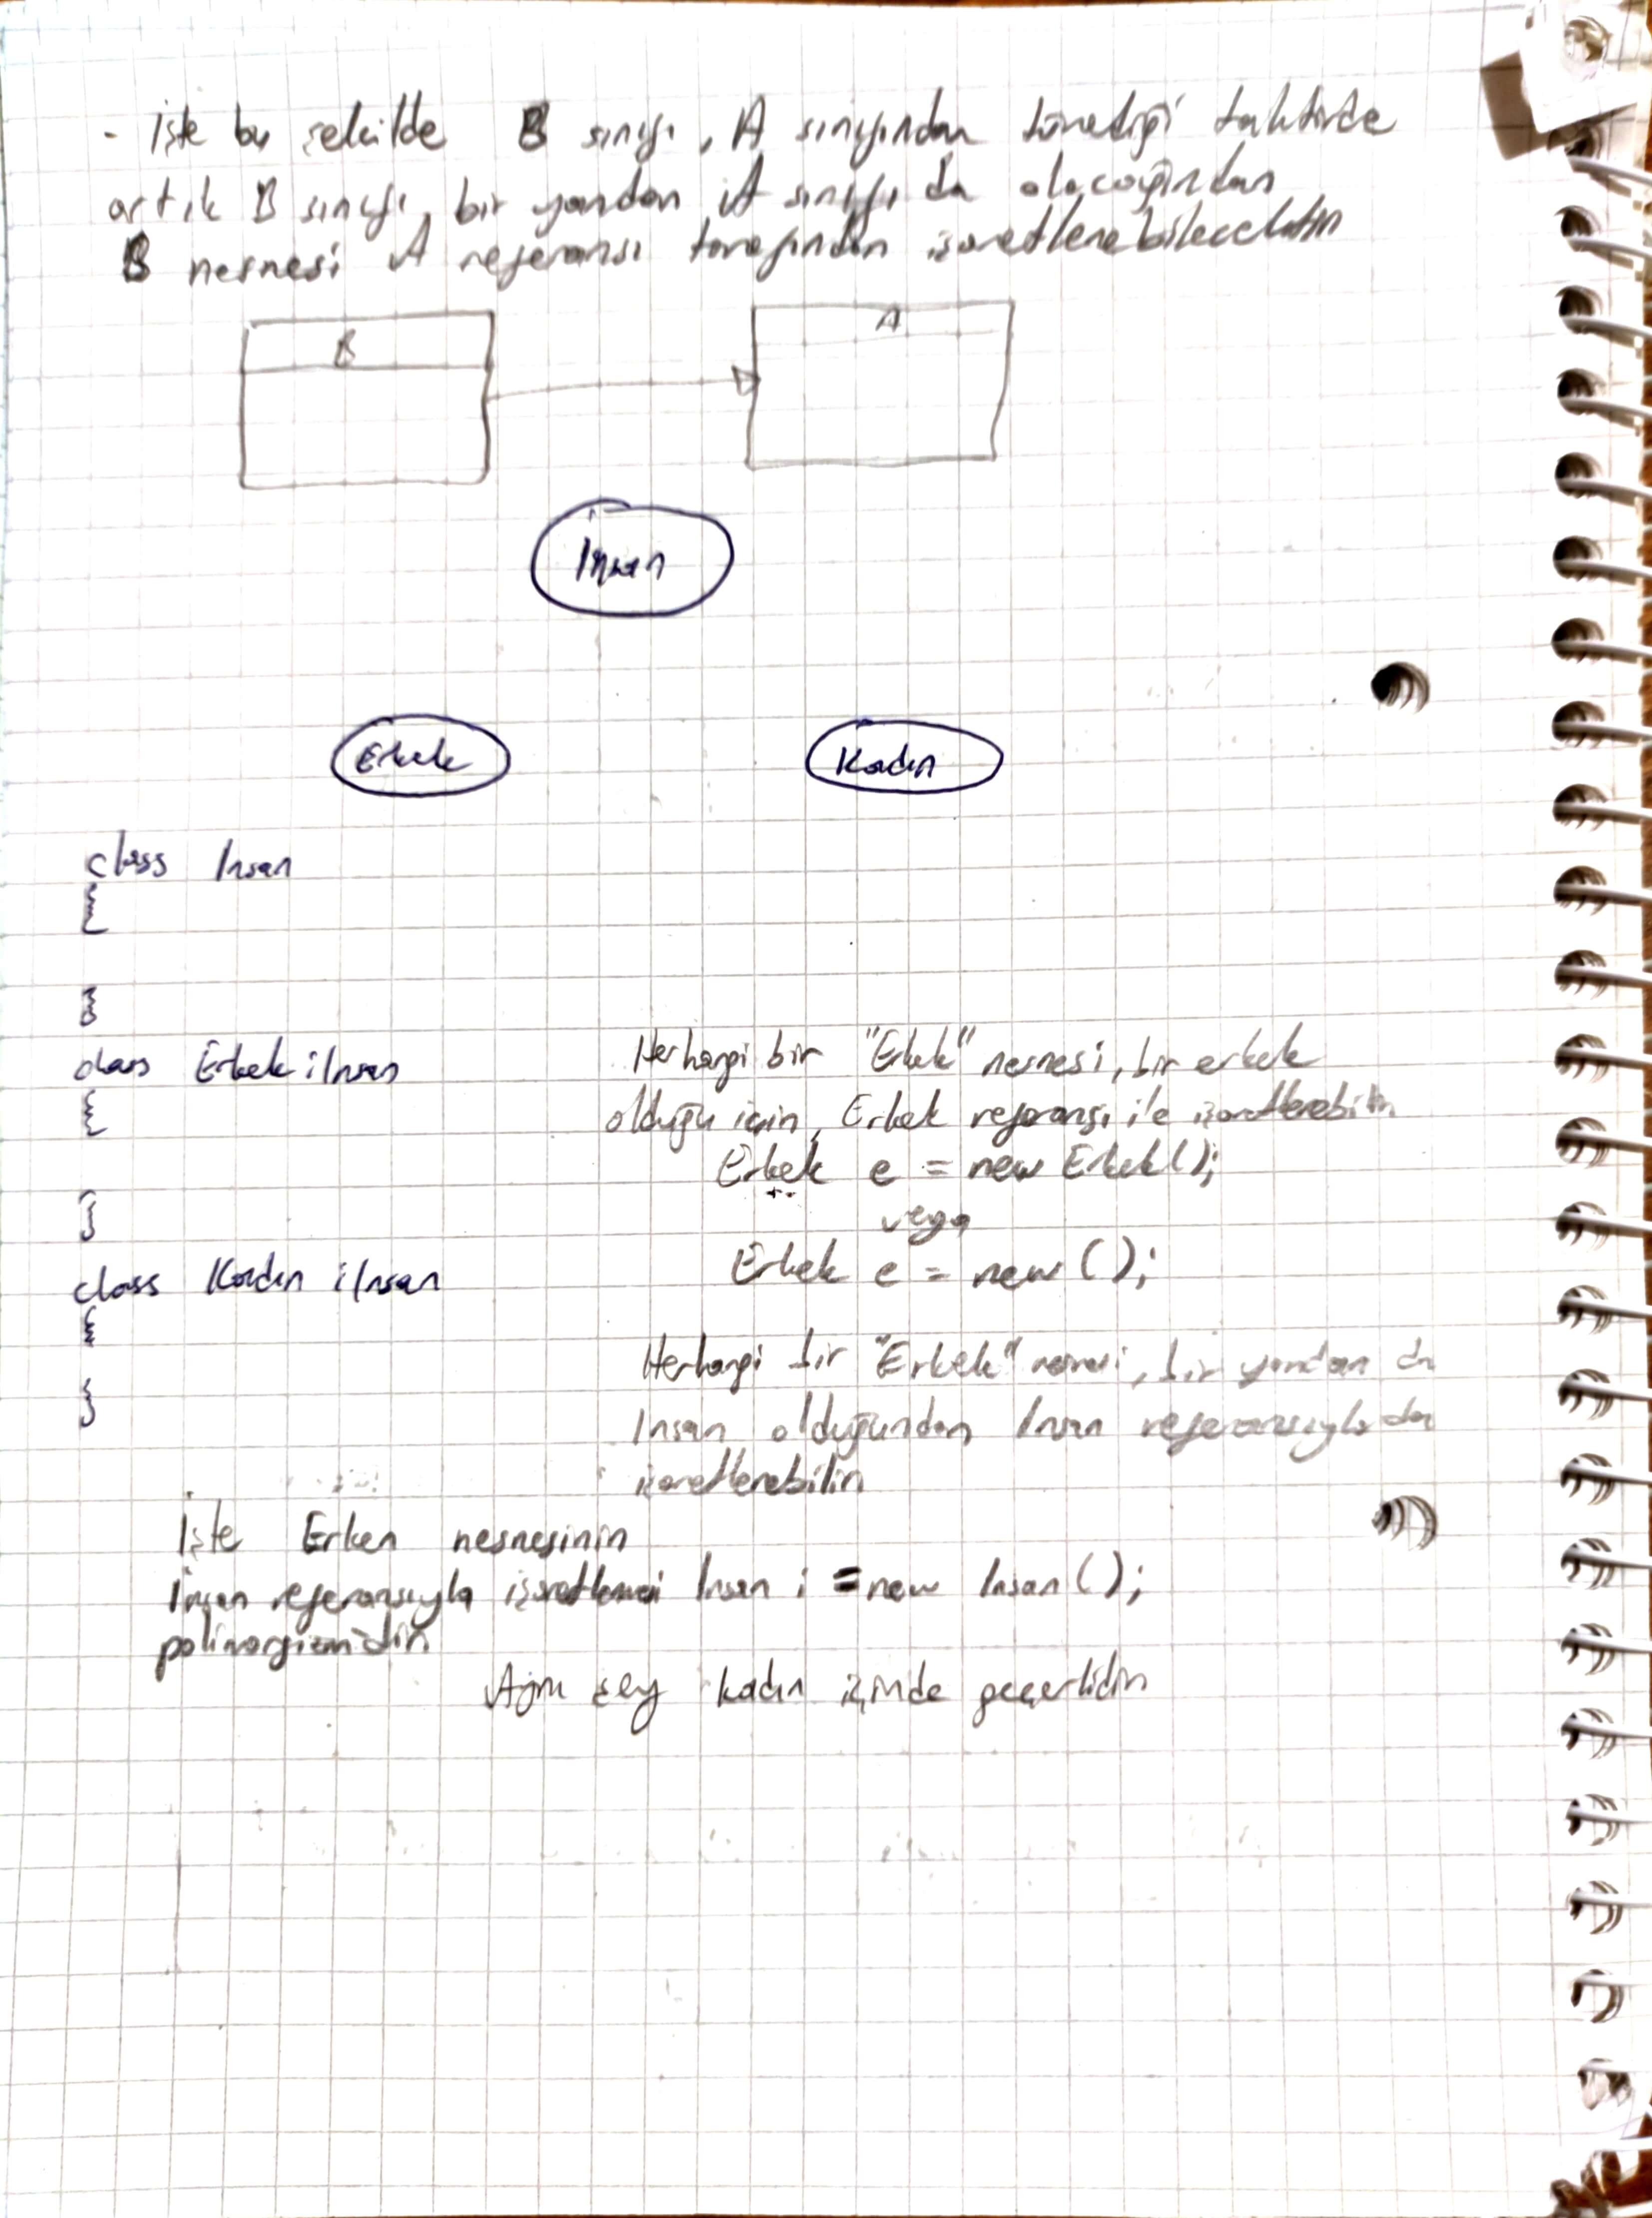 - İşte bu şekilde B sınıfı, A sınıfından türediği taktirde
artık B sınıfı, bir yandan A sınıfı da olacağından
B nesnesi A referansı tarafından işaretlenebilecektir
B
A
İnsan
Erkek
Kadın
class Insan
{
}
class Erkek : Insan
{
}
class Kadın : Insan
{
}
Herhangi bir "Erkek" nesnesi, bir erkek
olduğu için, Erkek referansı ile işaretlenebilir
Erkek e = new Erkek();
veya
Erkek e = new ();
Herhangi bir "Erkek" nesnesi, bir yandan da
Insan olduğundan Insan referansıyla da
işaretlenebilir
İşte Erken nesnesinin
İnsan referansıyla işaretlemesi Insan i = new Insan();
polimorfizmdir
Aynı şey kadın içinde geçerlidir